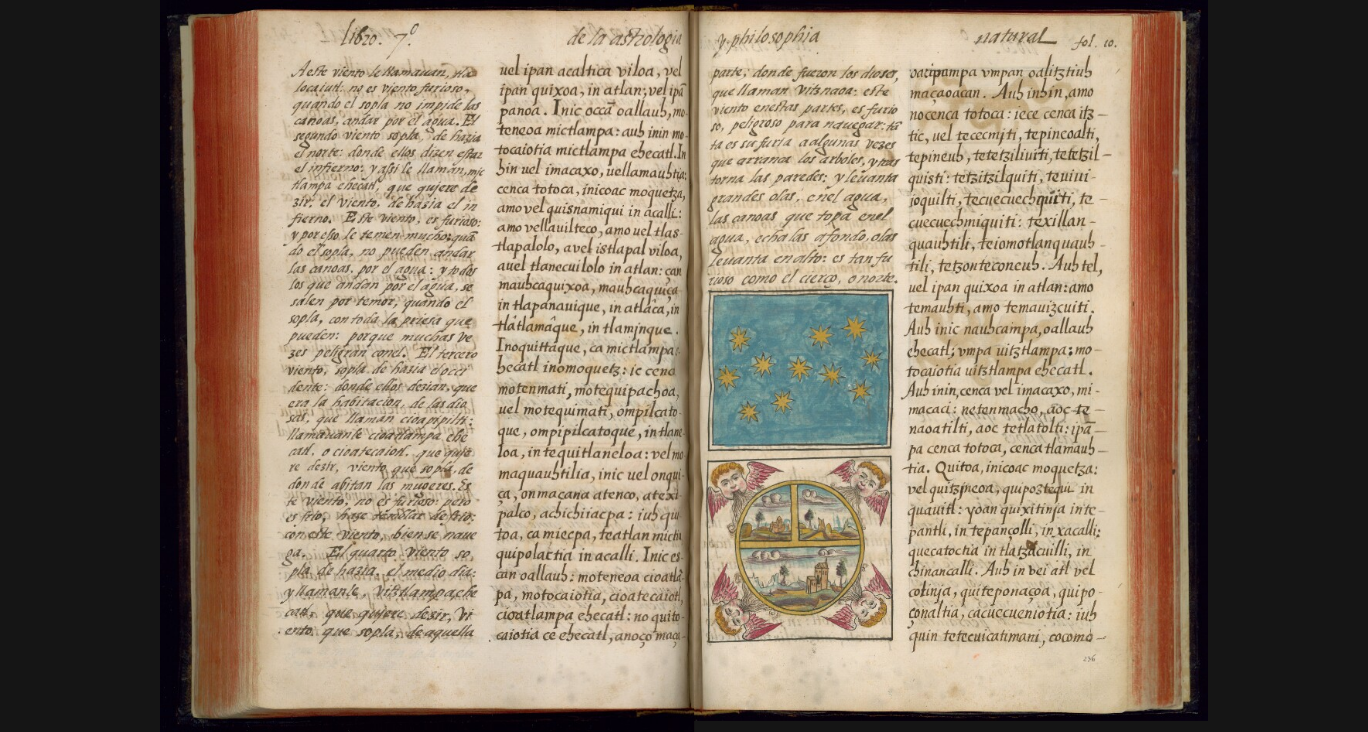 Libro. 7º.
de la astrologia
A este viento le llamauan, tla
locaiutl. no es viento furioso,
quando el sopla no impide las
canoas, andar por el agua. El
segundo viento sopla, de hazia
el norte: donde ellos dizen estar
el infierno: y assi le llaman, mic
tlampa ehecatl, que quiere de
zir, el viento, de hazia el in
fierno. Este viento, es furioso:
y por eso le temen mucho, quā
do el sopla, no pueden andar
las canoas, por el agua: y todos
los que andan por el agua, se
salen por temor, quando el
sopla, con toda la priesa que
pueden: porque muchas ve
zes peligran conel. El tercero
viento, sopla de hazia el occi
dente: donde ellos dezian, que
era la habitacion, de las dio
sas, que llaman cioapipilti:
llamauanle cioatlampa ehe
catl. o cioatecaiotl. que quie
re dezir, viento que sopla de
donde abitan las mugeres. Es
te viento, no es furioso: pero
es frio, haze temblar de frio:
con este viento, bien se naue
ga. El quarto viento so,
pla de hazia, el medio dia:
y llamanle, vitztlampa ehe
catl. que quiere dezir, vi
ento, que sopla, de aquella
uel ipan acaltica viloa, vel
ipan quixoa, in atlan; vel ipā
panoa. Inic occā oallauh, mo
teneoa mictlampa: auh inin mo
tocaiotia mictlampa ehecatl. In
hin vel imacaxo, uellamauhtia:
cenca totoca, inicoac moquetza,
amo vel quisnamiqui in acalli:
amo vellauilteco, amo uel tlas
tlapalolo, avel istlapal viloa,
auel tlanecuilolo in atlan: can
mauhcaquixoa, mauhcaquiça
in tlapanauique, in atlāca, in
tlatlamāque, in tlaminque.
Inoquittaque, ca mictlampa
hecatl inomoquetz: ie cenca
motenmati, motequipachoa,
uel motequimati, ompilcato
que, ompipilcatoque, in tlane
loa, in tequitlaneloa: vel mo
maquauhtilia, inic uel onqui
ça, onmacana atenco, atexi
palco, achichiiacpa: iuh qui
toa, ca miecpa, teatlan micti
quipolactici in acalli. Inic es
can oallauh: moteneoa cioatla
pa, motocaiotia, cioatecaiotl,
cioatlampa ehecatl: no quito
caiotia ce ehecatl, anoço maça
y philosophia
natural
fol. 10.
parte, donde fueron los dioses,
que llaman Vitznaoa: este
viento enestas partes, es furio
so, peligroso para nauegar: tā
ta es su furia algunas vezes
que arranca los arboles, y tras
torna las paredes, y leuanta
grandes olas, enel agua,
las canoas que topa enel
agua, echalas afondo, olas
leuanta en alto: es tan fu
rioso como el cierço, o norte.
oacipampa vmpan oalitztiuh
maçaoacan. Auh inhin, amo
no cenca totoca: iece cenca itz
tic, uel tececmiti, tepincoalti,
tepineuh, tetetziliuiti, tetetzil
quisti: tetzitzilquiti, teuiui
ioquilti, tecuecuechquiti, te
cuecuechmiquiti: texillan
quauhtili, teiomotlanquauh
tili, tetzonteconeuh. Auh tel,
uel ipan quixoa in atlan: amo
temauhti, amo temauizcuiti.
Auh inic nauhcampa, oallauh
ehecatl; vmpa uitztlampa: mo
tocaiotia uitztlampa ehecatl.
Auh inin, cenca vel imacaxo, mi
macaci: netenmacho, aoc te
naoatilti, aoc tetlatolti: ipā
pa cenca totoca, cenca tlamauh
tia. Quitoa, inicoac moquetza:
vel quitzineoa, quipoztequi in
quauitl: yoan quixitinia in te
pantli, in tepançolli, in xacalli;
quecatoctia in tlatzacuilli, in
chinancalli. Auh in vei atl vel
colinia, quiteponaçoa, quipo
çonaltia, cacuecueniotia: iuh
quin tetecuicatimani, cocomo
236